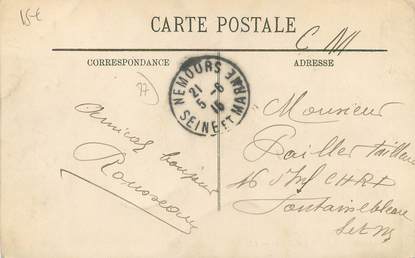 15€
CARTE POSTALE
C M
CORRESPONDANCE
ADRESSE
77
NEMOURS
21 -6
5 15
SEINE ET MARNE
Amical bonjour
Rousseau
Monsieur
Pailler tailleur
Fontainebleau
S et M